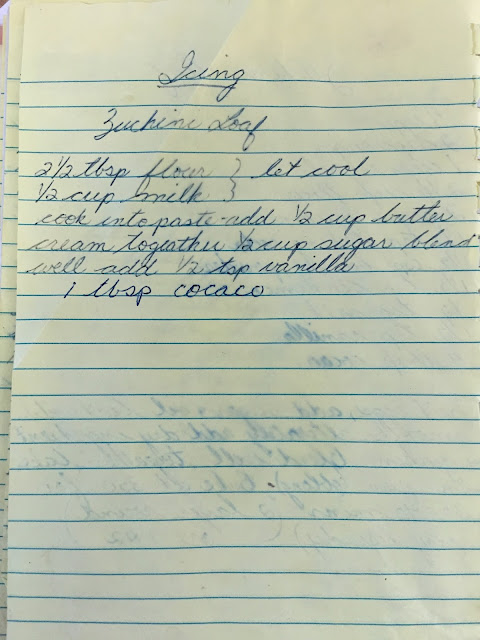 Icing
Zuchini Loaf
2 1/2 tbsp flour } let cool
1/2 cup milk }
cook into paste-add 1/2 cup butter
cream togeather 1/2 cup sugar blend
well add 1/2 tsp vanilla
1 tbsp cocaco